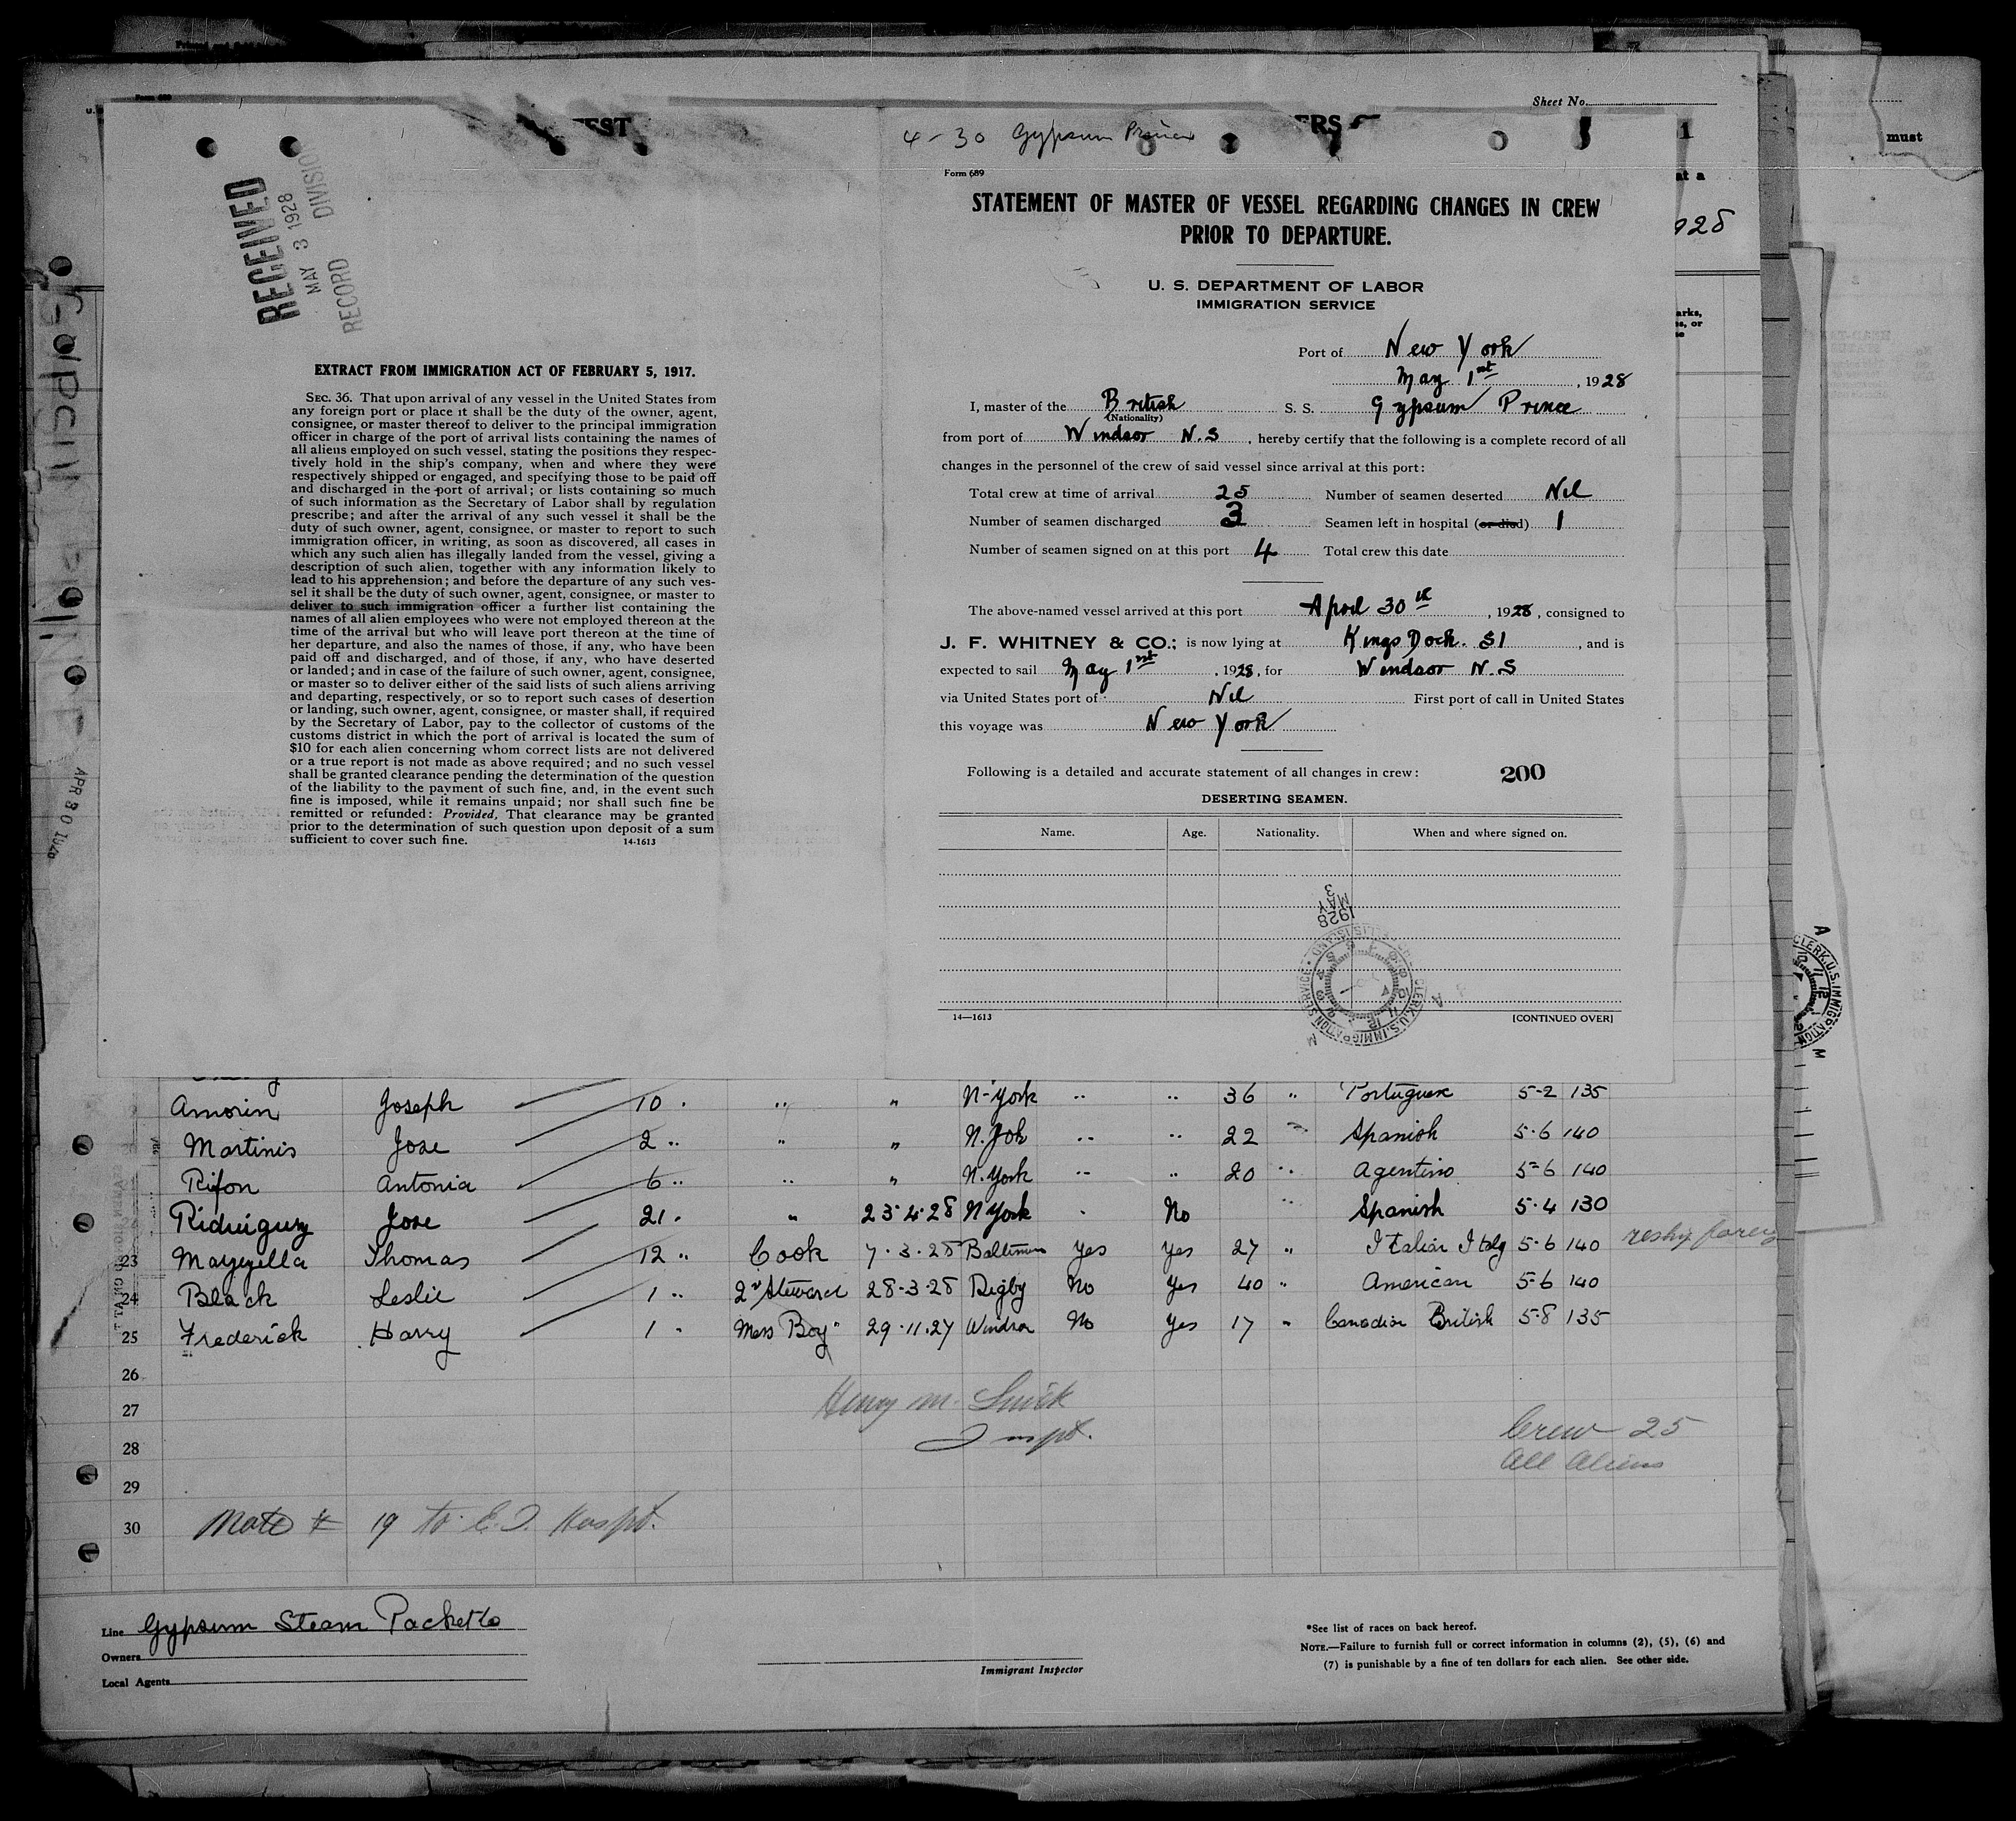 Form 689
Sheet No.
must
at a
928
arks,
s, or
se
RECEIVED
MAY 3 1928
RECORD DIVISION
EXTRACT FROM IMMIGRATION ACT OF FEBRUARY 5, 1917.
SEC. 36. That upon arrival of any vessel in the United States from
any foreign port or place it shall be the duty of the owner, agent,
consignee, or master thereof to deliver to the principal immigration
officer in charge of the port of arrival lists containing the names of
all aliens employed on such vessel, stating the positions they respec-
tively hold in the ship's company, when and where they were
respectively shipped or engaged, and specifying those to be paid off
and discharged in the port of arrival; or lists containing so much
of such information as the Secretary of Labor shall by regulation
prescribe; and after the arrival of any such vessel it shall be the
duty of such owner, agent, consignee, or master to report to such
immigration officer, in writing, as soon as discovered, all cases in
which any such alien has illegally landed from the vessel, giving a
description of such alien, together with any information likely to
lead to his apprehension; and before the departure of any such ves-
sel it shall be the duty of such owner, agent, consignee, or master to
deliver to such immigration officer a further list containing the
names of all alien employees who were not employed thereon at the
time of the arrival but who will leave port thereon at the time of
her departure, and also the names of those, if any, who have been
paid off and discharged, and of those, if any, who have deserted
or landed; and in case of the failure of such owner, agent, consignee,
or master so to deliver either of the said lists of such aliens arriving
and departing, respectively, or so to report such cases of desertion
or landing, such owner, agent, consignee, or master shall, if required
by the Secretary of Labor, pay to the collector of customs of the
customs district in which the port of arrival is located the sum of
$10 for each alien concerning whom correct lists are not delivered
or a true report is not made as above required; and no such vessel
shall be granted clearance pending the determination of the question
of the liability to the payment of such fine, and, in the event such
fine is imposed, while it remains unpaid; nor shall such fine be
remitted or refunded: Provided, That clearance may be granted
prior to the determination of such question upon deposit of a sum
sufficient to cover such fine. 14-1613
4-30 Gypsum Prince
Form 689
STATEMENT OF MASTER OF VESSEL REGARDING CHANGES IN CREW
PRIOR TO DEPARTURE.
U. S. DEPARTMENT OF LABOR
IMMIGRATION SERVICE
Port of New York
May 1st, 1928
I, master of the British S. S. Gypsum Prince
(Nationality)
from port of Windsor N.S, hereby certify that the following is a complete record of all
changes in the personnel of the crew of said vessel since arrival at this port:
Total crew at time of arrival 25 Number of seamen deserted Nil
Number of seamen discharged 3 Seamen left in hospital (or died) 1
Number of seamen signed on at this port 4 Total crew this date
The above-named vessel arrived at this port April 30th, 1928, consigned to
J. F. WHITNEY & CO.; is now lying at Kings Dock. SI, and is
expected to sail May 1st, 1928, for Windsor N.S
via United States port of Nil First port of call in United States
this voyage was New York
Following is a detailed and accurate statement of all changes in crew: 200
DESERTING SEAMEN.
Name. Age. Nationality. When and where signed on.
1928
MAY
3
CLERK, U.S. IMMIGRATION SERVICE
14—1613 [CONTINUED OVER]
APR 30 1928
Amorin Joseph 10 " " " N-York " " 36 " Portuguese 5-2 135
Martinis Jose 2 " " " N.Yok " " 22 " Spanish 5-6 140
Rifon Antonia 6 " " " N.York " " 20 " Agentino 5-6 140
Riduiguz Jose 21 " " 23.4.28 N York " No " Spanish 5.4 130
23 Mazezella Thomas 12 " Cook 7.3.28 Baltimore Yes Yes 27 " Italian Italy 5-6 140
24 Black Leslie 1 " 2nd Steward 28-3-28 Digby No Yes 40 " American 5-6 140
25 Frederick Harry 1 " Mess Boy 29.11.27 Windsor No Yes 17 " Canadian British 5-8 135
26
27
28
29
30
Henry M.
Inspt.
Crew 25
All Aliens
Note # 19 to E.I. Hospt.
Line Gypsum Steam Packet Co
Owners
Local Agents
Immigrant Inspector
*See list of races on back hereof.
NOTE.—Failure to furnish full or correct information in columns (2), (5), (6) and
(7) is punishable by a fine of ten dollars for each alien. See other side.
CLERK, U.S. IMMIGRATION